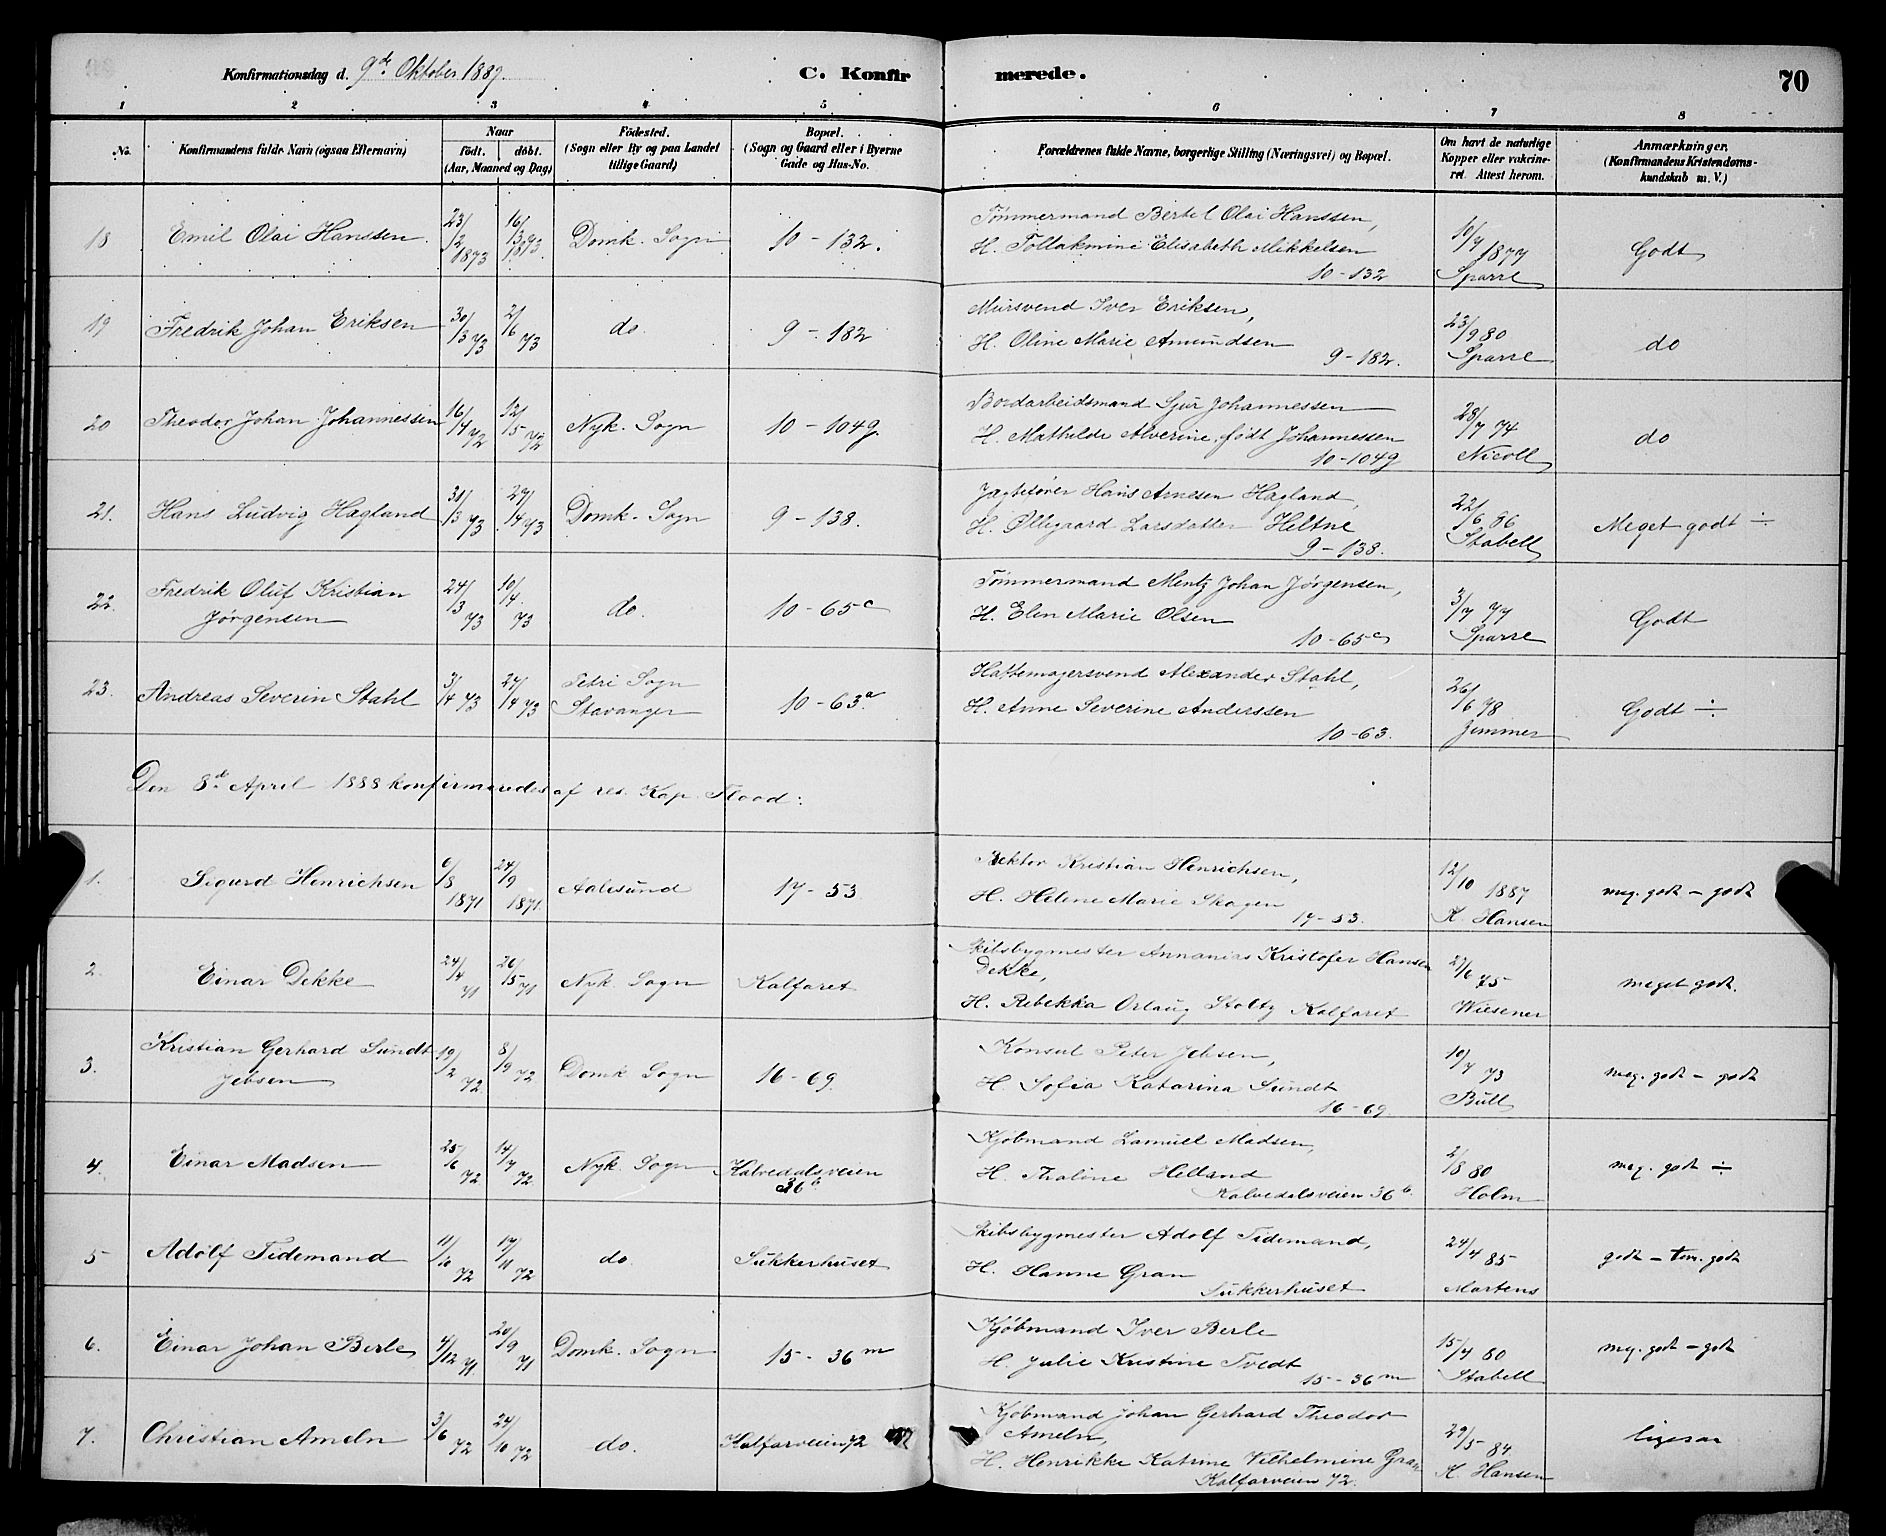 Konfirmationsdag d. 9de Oktober 1887.
C. Konfirmerede.
70
1 2 3 4 5 6 7 8
No.
Konfirmandens fulde Navn (ogsaa Efternavn)
Naar
födt. döbt.
(Aar, Maaned og Dag)
Födested.
(Sogn eller By og paa Landet
tillige Gaard)
Bopæl.
(Sogn og Gaard eller i Byerne
Gade og Hus-No.
Forældrenes fulde Navne, borgerlige Stilling (Næringsvei) og Bopæl.
Om havt de naturlige
Kopper eller vakcine-
ret. Attest herom.
Anmærkninger.
(Konfirmandens Kristendoms-
kundskab m. V.)
18 Emil Olai Hanssen. 23/2 1873 16/3 1873. Domk. Sogn 10 - 132.
Tømmermand Bertel Olai Hanssen,
H. Tollakmine Elisabeth Mikkelsen
10 - 132
10/7 1877
Sparre
Godt
19 Fredrik Johan Eriksen 30/3 73 2/6 73 do. 9 - 182
Mursvend Iver Eriksen,
H. Oline Marie Amundsen
9 - 182.
23/9 80
Sparre
do
20 Theodor Johan Johannessen 16/4 72 12/5 72 Nyk. Sogn 10 - 104g.
Bordarbeidsmand Sjur Johannessen
H. Mathilde Alverine, født Johannessen
10 - 104g
28/7 74
Nicoll
do
21. Hans Ludvig Hagland 31/3 73 27/4 73 Domk. Sogn 9 - 138.
Jægtefører Hans Arnesen Hagland,
H. Øllegaard Larsdatter Heltne
9 - 138.
22/6 86
Stabell
Meget godt ÷
22. Fredrik Oluf Kristian
Jørgensen 24/3 73 10/4 73 do. 10 - 65c
Tømmermand Mentz Johan Jørgensen,
H. Elen Marie Olsen
10 - 65c
3/7 77
Sparre
Godt
23. Andreas Severin Stahl 3/4 73 27/4 73 Petri Sogn
Stavanger 10 - 63a
Hattemagersvend Alexander Stahl,
H. Anne Severine Anderssen
10 - 63.
26/6 78
Zimmer
Godt ÷
Den 8de April 1888 konfirmeredes af res. Kap. Flood:
1. Sigurd Henrichsen 6/8 1871 24/9 1871. Aalesund 17 - 53
Rektor Kristian Henrichsen,
H. Helene Marie Skogen
17 - 53.
12/10 1887
K. Hansen
meg. godt - godt
2. Einar Dekke 24/4 71 26/5 71 Nyk. Sogn Kalfaret
Skibsbygmester Annanias Kristofer Hansen
Dekke,
H. Rebekka Orlaug Stoltz Kalfaret
27/6 75
Wiesener
meget godt.
3. Kristian Gerhard Sundt
Jebsen 19/2 72. 8/9 72 Domk. Sogn 16 - 69.
Konsul Peter Jebsen,
H. Sofia Katarina Sundt
16 - 69
10/7 73
Bull
meg. godt - godt
4. Einar Madsen 25/6 72 14/7 72. Nyk. Sogn Kalvedalsveien
36b
Kjøbmand Lamuel Madsen,
H. Thaline Helland
Kalvedalsveien 36b.
2/8 80
Holm
meg. godt ÷
5 Adolf Tidemand 11/10 72 17/11 72 do. Sukkerhuset
Skibsbygmester Adolf Tidemand,
H. Hanne Gran
Sukkerhuset
24/4 85
Martens
godt - tem. godt
6. Einar Johan Berle 4/12 71. 20/9 71 Domk. Sogn 15 - 36m
Kjøbmand Iver Berle
H. Julie Kristine Tvedt
15 - 36m
15/7 80
Stabell
meg. godt - godt
7. Christian Ameln 3/6 72 24/10 72 do. Kalfarveien 72
Kjøbmand Johan Gerhard Theodor
Ameln,
H. Henrikke Katrine Vilhelmine Gran
Kalfarveien 72.
29/5 84.
K. Hansen
ligesaa